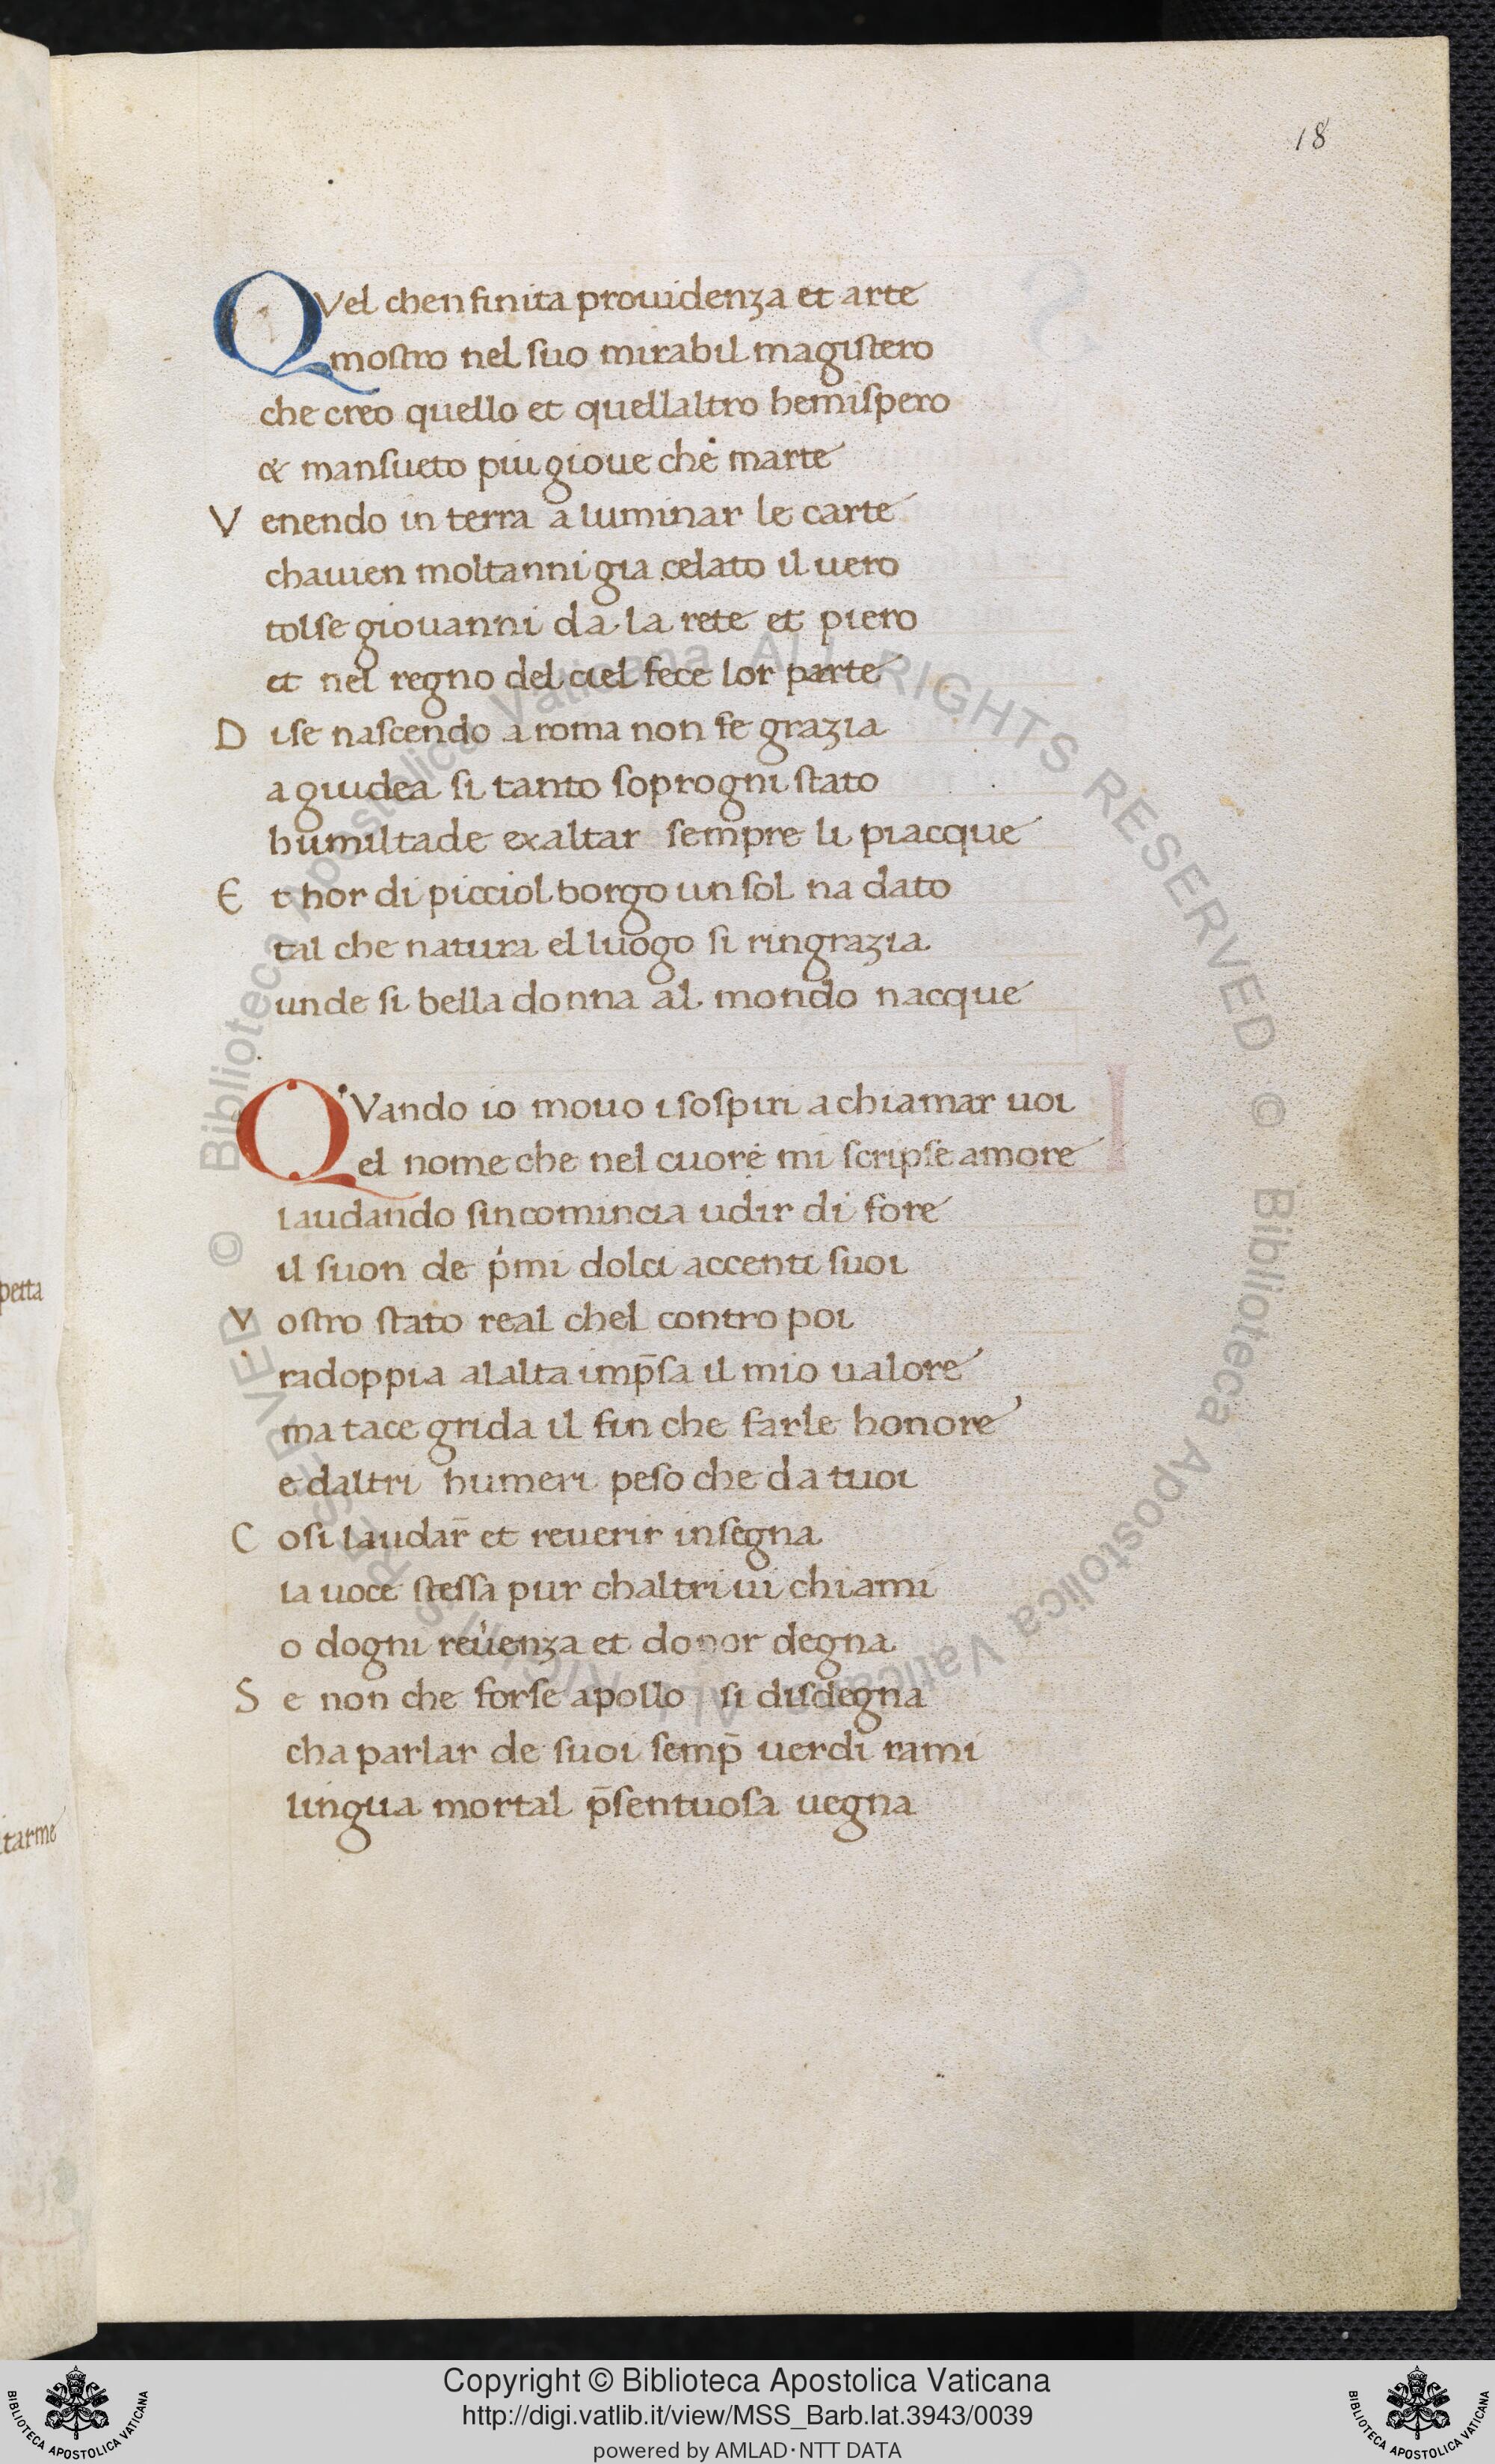 18
QVel chenfinita prouidenza et arte
mostro nel suo mirabil magistero
che creo quello et quellaltro hemispero
& mansueto piu gioue che marte
V enendo in terra a luminar le carte
chauien moltanni gia celato il uero
tolse giouanni da la rete et piero
et nel regno del ciel fece lor parte
D ise nascendo a roma non fe grazia
a giudea si tanto soprogni stato
humiltade exaltar sempre li piacque
E t hor di picciol borgo un sol na dato
tal che natura el luogo si ringrazia
unde si bella donna al mondo nacque
QVando io mouo i sospiri a chiamar uoi
el nome che nel cuore mi scripse amore
laudando sincomincia udir di fore
il suon de p̓mi dolci accenti suoi
V ostro stato real chel contro poi
radoppia alalta imp̄sa il mio ualore
ma tace grida il fin che farle honore
e daltri humeri peso che da tuoi
C osi laudar̄ et reuerir insegna
la uoce stessa pur chaltri ui chiami
o dogni reu̓enza et donor degna
S e non che forse apollo si disdegna
cha parlar de suoi semp̄ uerdi rami
lingua mortal p̄sentuosa uegna
petta
tarme
© Biblioteca Apostolica Vaticana ALL RIGHTS RESERVED © Biblioteca Apostolica Vaticana ALL RIGHTS RESERVED
Copyright © Biblioteca Apostolica Vaticana
http://digi.vatlib.it/view/MSS_Barb.lat.3943/0039
powered by AMLAD·NTT DATA
BIBLIOTECA APOSTOLICA VATICANA
BIBLIOTECA APOSTOLICA VATICANA